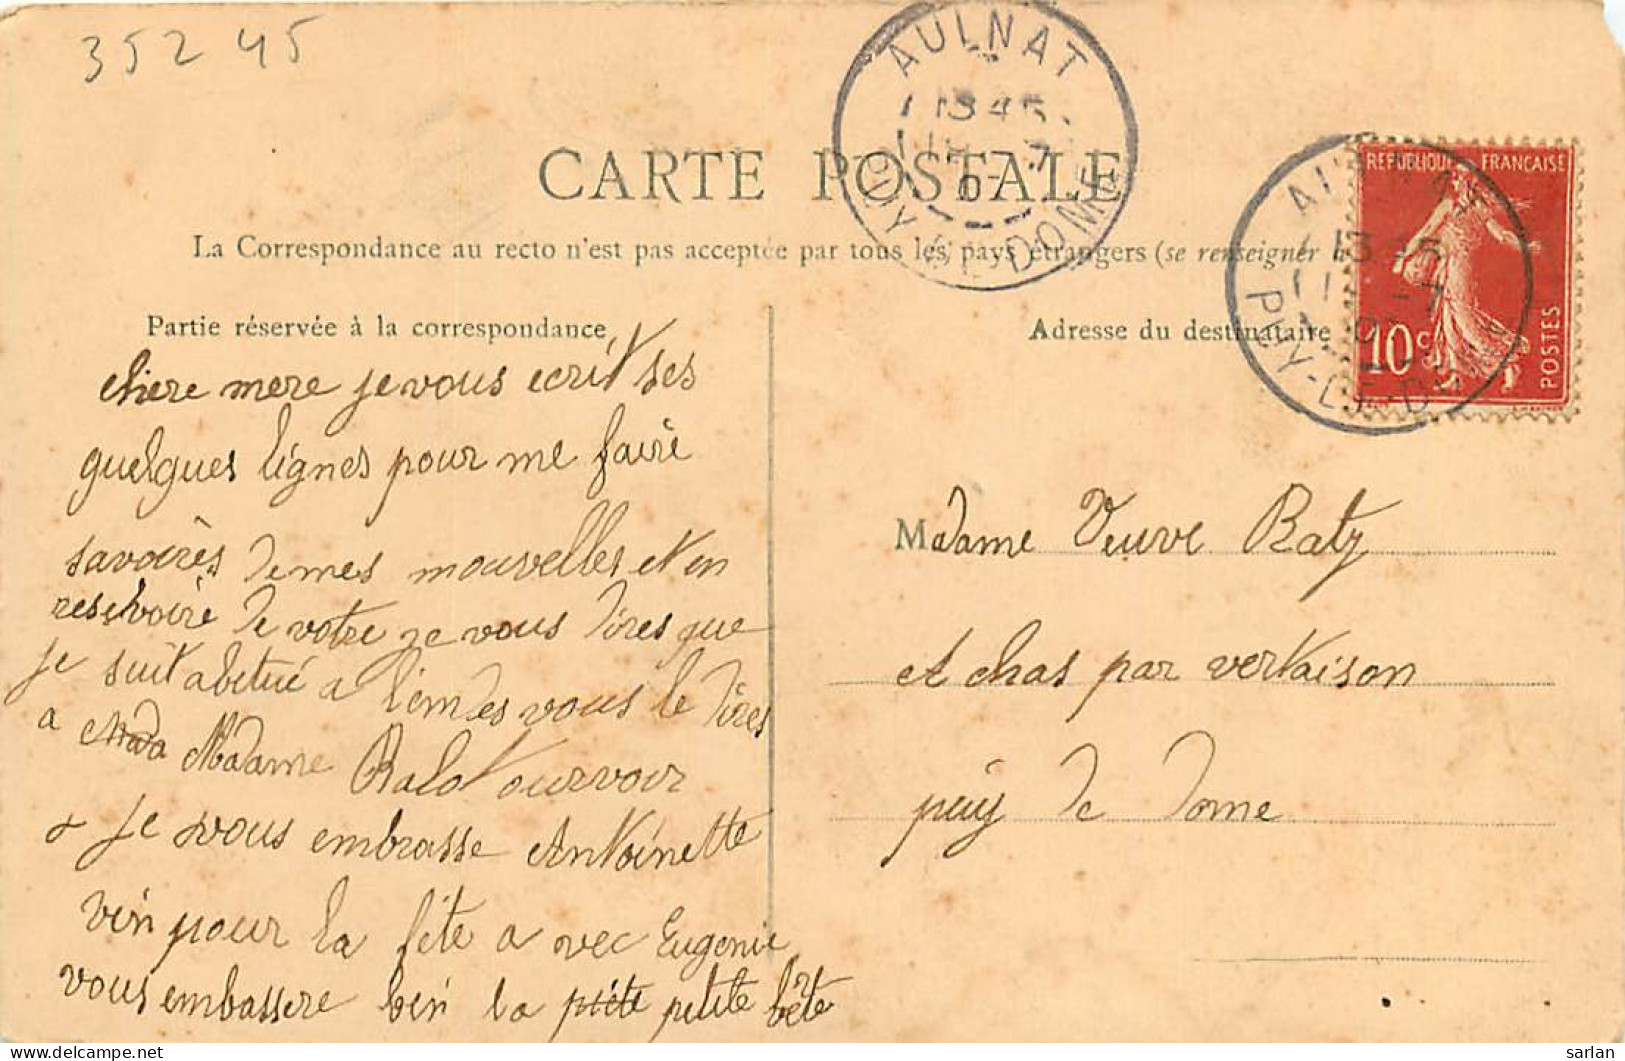 35245
AULNAT
1345
PUY-DE-DOME
CARTE POSTALE
La Correspondance au recto n'est pas acceptée par tous les pays étrangers (se renseigner à
REPUBLIQUE FRANÇAISE
10c
POSTES
PUY-DE-DOME
Partie réservée à la correspondance
Adresse du destinataire
chere mere je vous ecrit ses
quelques lignes pour me faire
savoires de mes mouvelles et en
resevoire de votre je vous dires que
je suit abetué a vous le dires
a Madame
je vous embrasse Antoinette
vin pour la fete a vec Eugenie
vous embassere ben la petite
Madame Veuve Raty
A chas par vertaison
puy de dome
sarlan